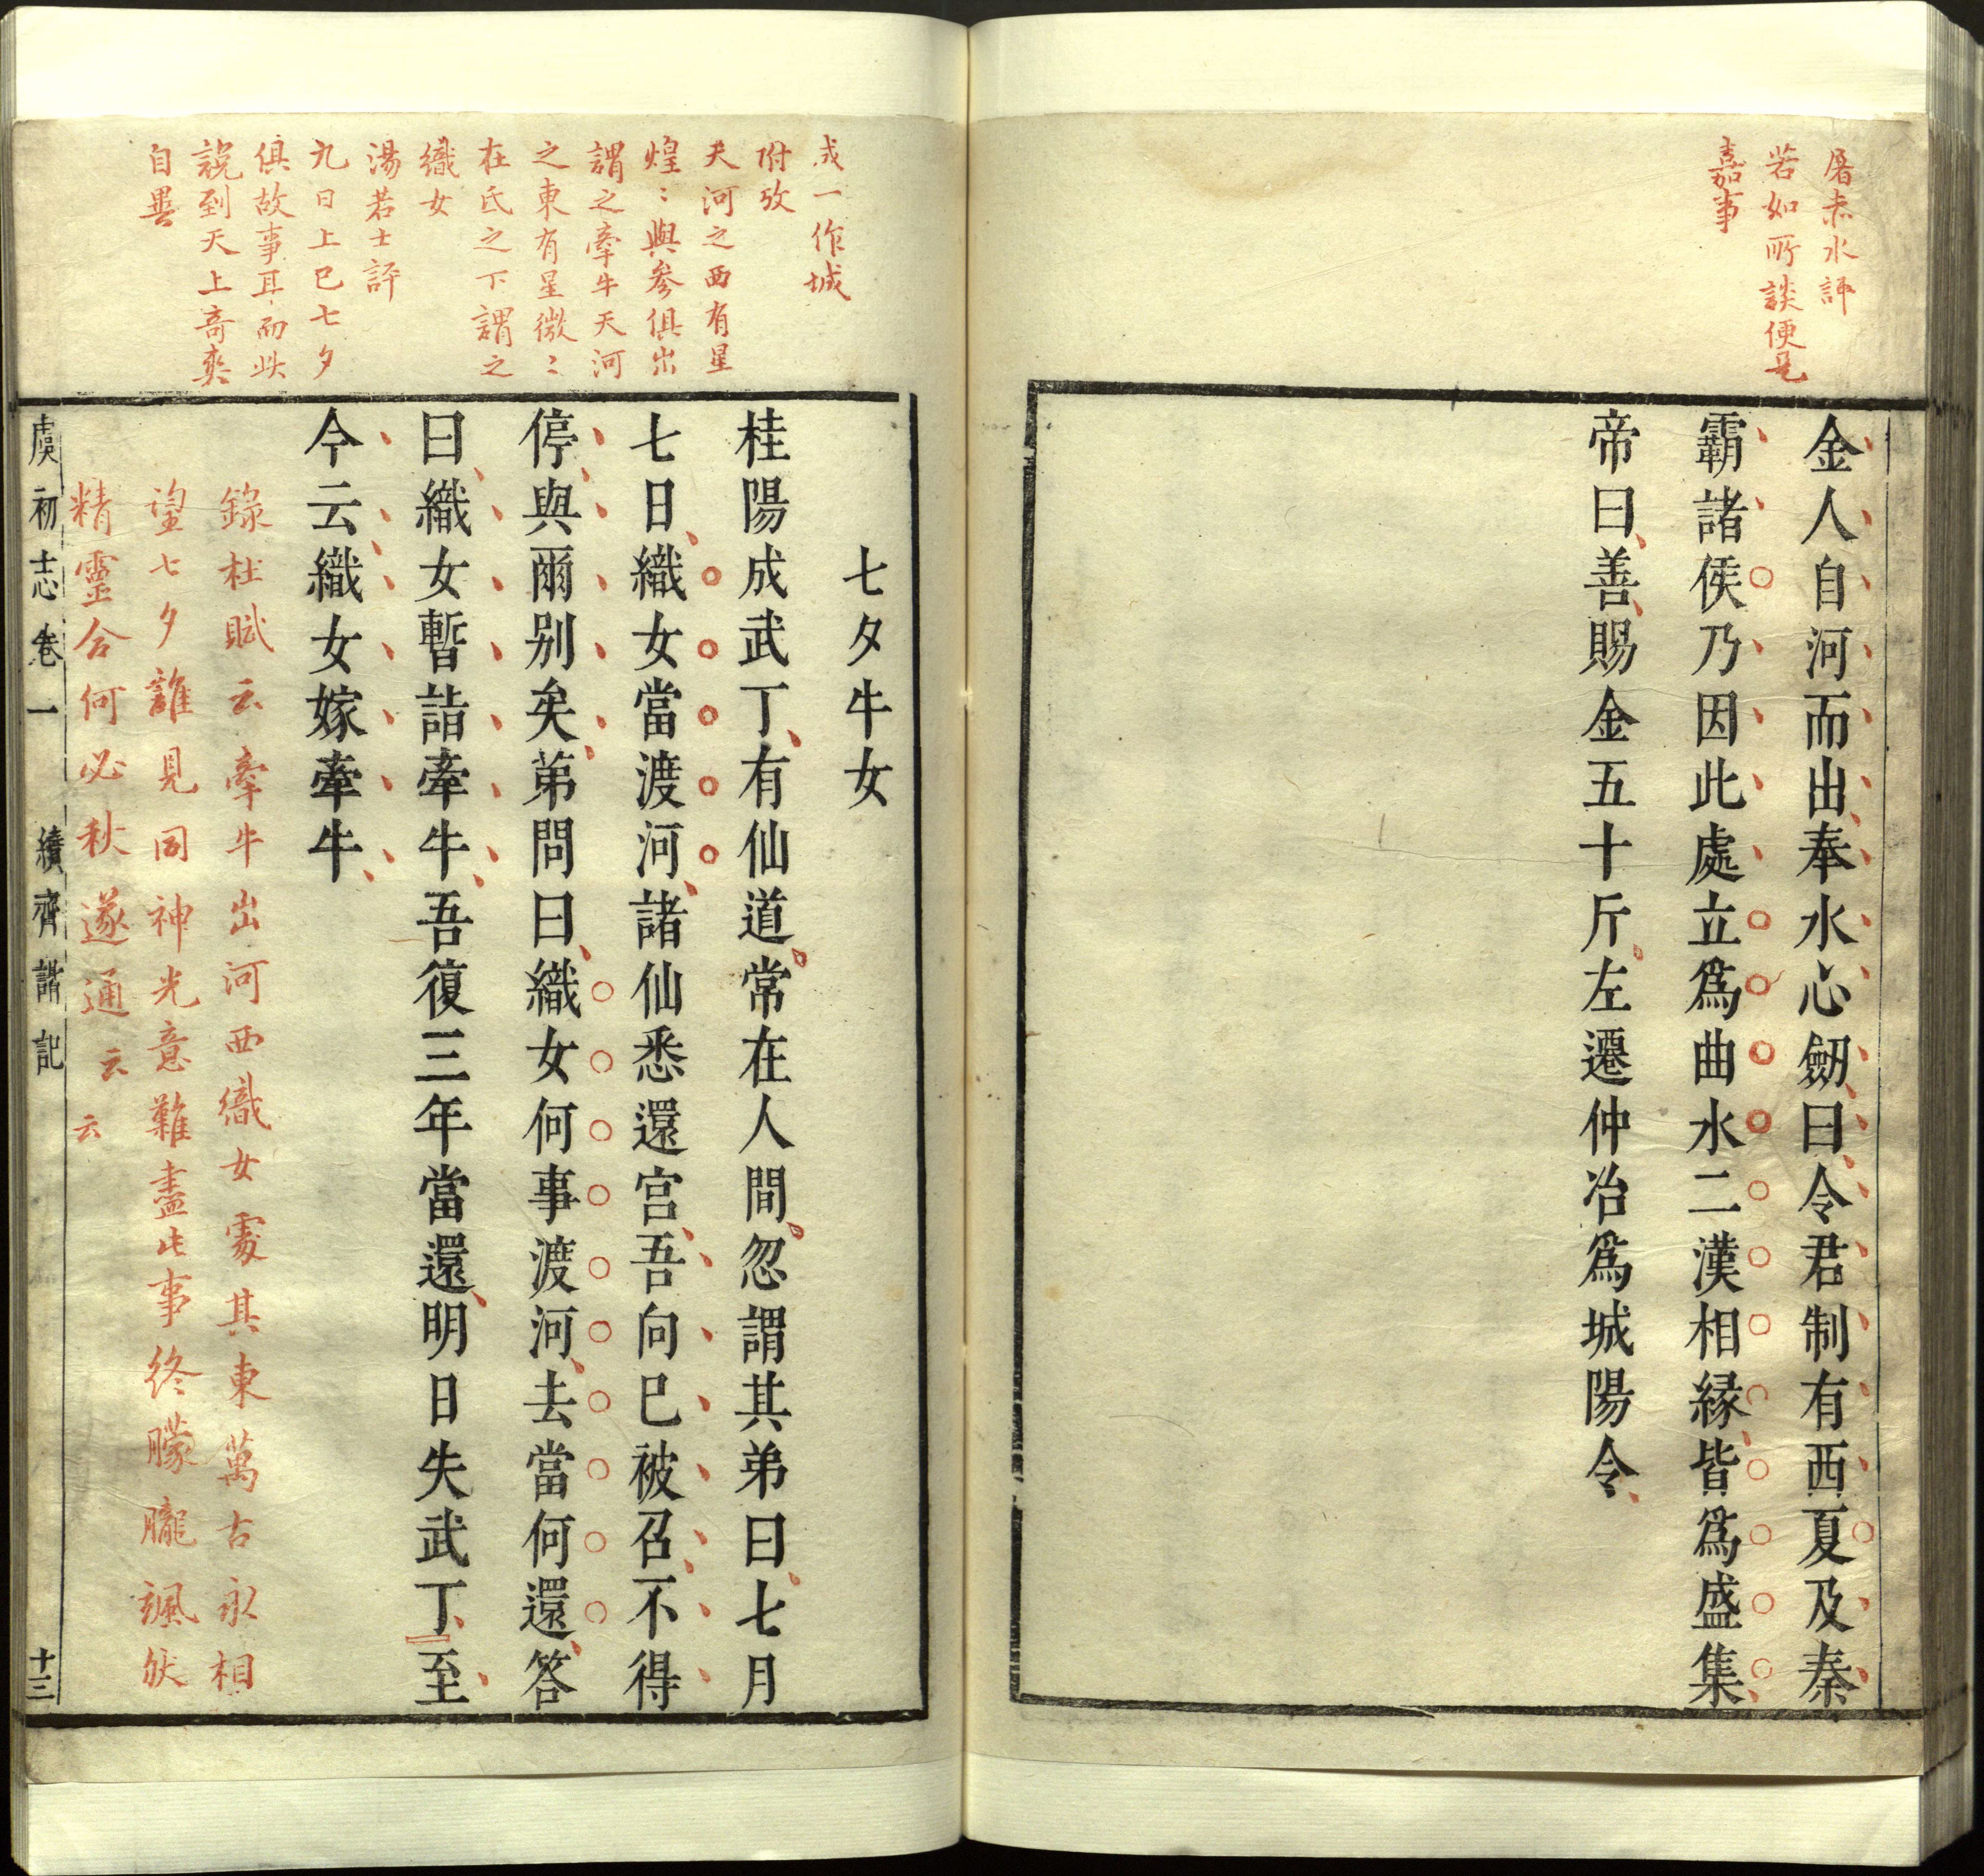 屠赤水評
若如所談便是
嘉事
金人自河而出奉水心劒曰令君制有西夏及秦
霸諸侯乃因此處立爲曲水二漢相縁皆爲盛集
帝曰善賜金五十斤左遷仲冶爲城陽令
成一作城
附攷
天河之西有星
煌〻與參俱出
謂之牽牛天河
之東有星微〻
在氐之下謂之
織女
湯若士評
九日上巳七夕
俱故事耳而此
說到天上奇奕
自異
七夕牛女
桂陽成武丁有仙道常在人間忽謂其弟曰七月
七日織女當渡河諸仙悉還宮吾向已被召不得
停與爾别矣弟問曰織女何事渡河去當何還答
曰織女暫詣牽牛吾復三年當還明日失武丁至
今云織女嫁牽牛
錄杜賦云牽牛出河西織女處其東萬古永相
望七夕誰見同神光意難盡此事終朦朧颯然
精靈合何必秋遂通云云
虞初志卷一 續齊諧記 十三